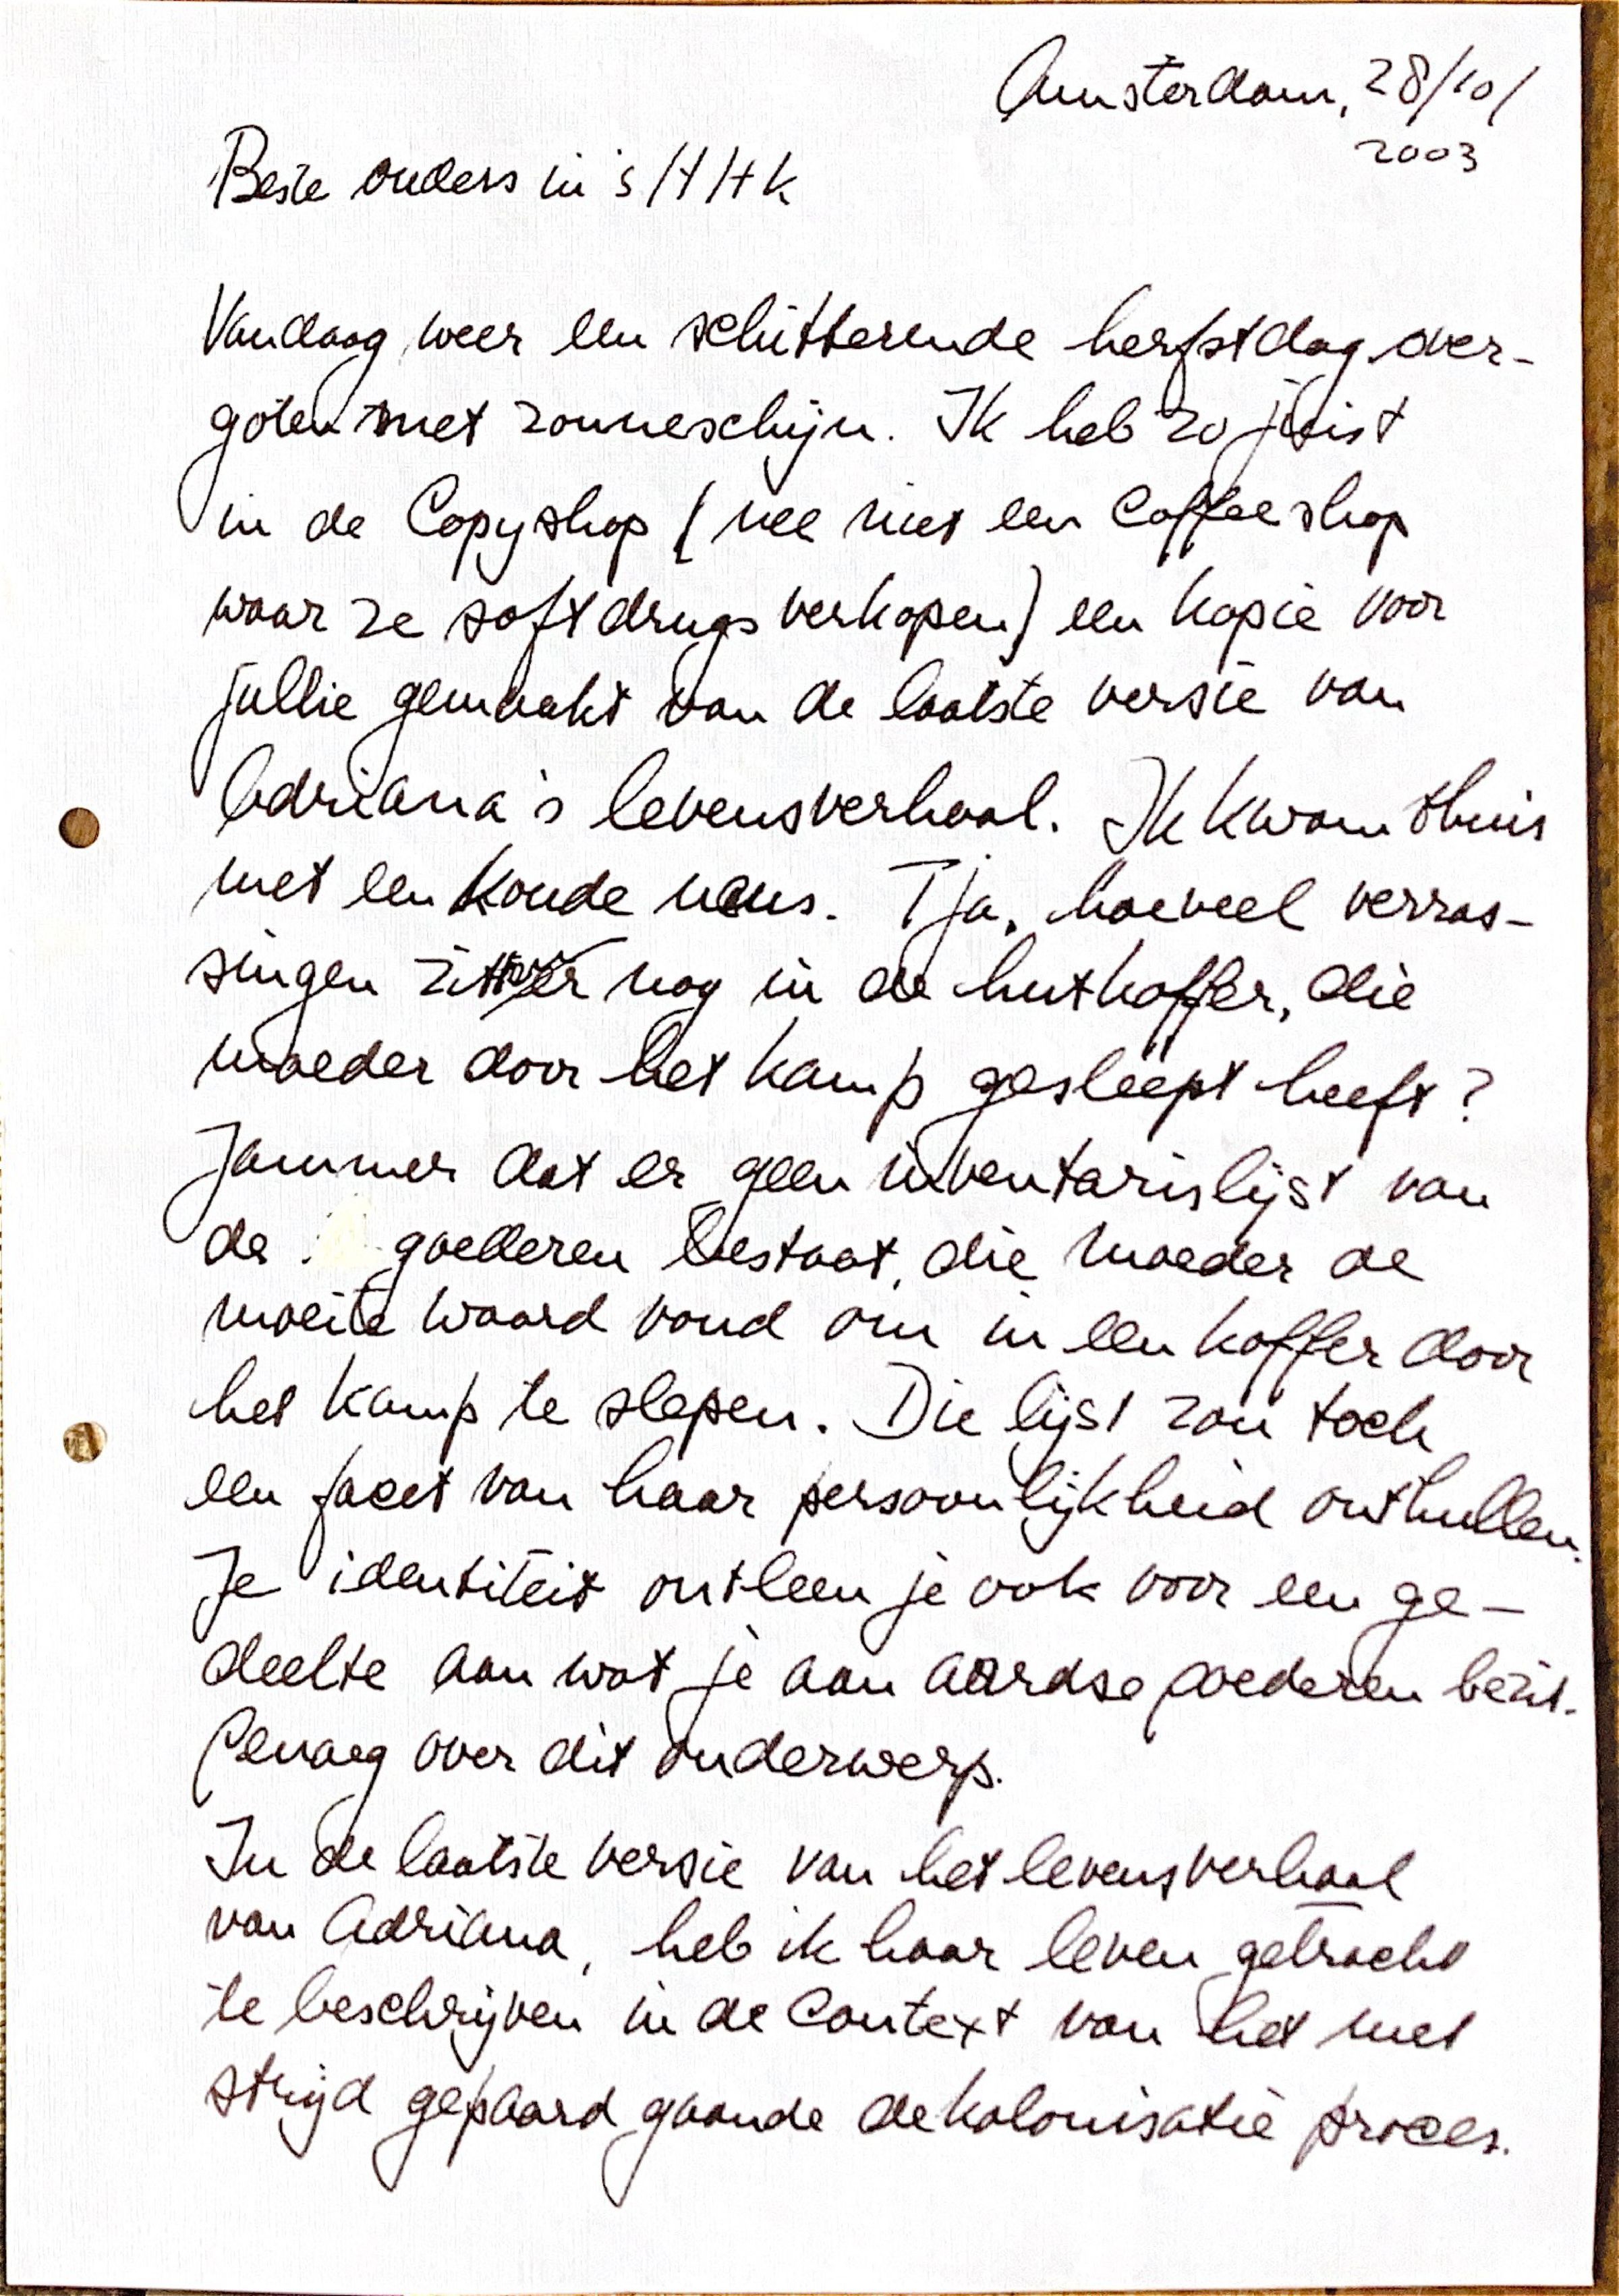 Amsterdam, 28/10/
2003
Beste ouders in 's HHK
Vandaag weer een schitterende herfstdag over-
goten met zonneschijn. Ik heb zo juist
in de Copyshop (nee niet een Coffeeshop
waar ze softdrugs verkopen) een kopie voor
jullie gemaakt van de laatste versie van
Adriana's levensverhaal. Ik kwam thuis
met een koude neus. Tja, hoeveel verras-
singen zitten er nog in de hutkoffer, die
moeder door het kamp gesleept heeft?
Jammer dat er geen inventarislijst van
de goederen bestaat, die moeder de
moeite waard vond om in een koffer door
het kamp te slepen. Die lijst zou toch
een facet van haar persoonlijkheid onthullen.
Je identiteit ontleen je ook voor een ge-
deelte aan wat je aan aardse goederen bezit.
Genoeg over dit onderwerp.
In de laatste versie van het levensverhaal
van Adriana, heb ik haar leven getracht
te beschrijven in de context van het met
strijd gepaard gaande dekolonisatie proces.